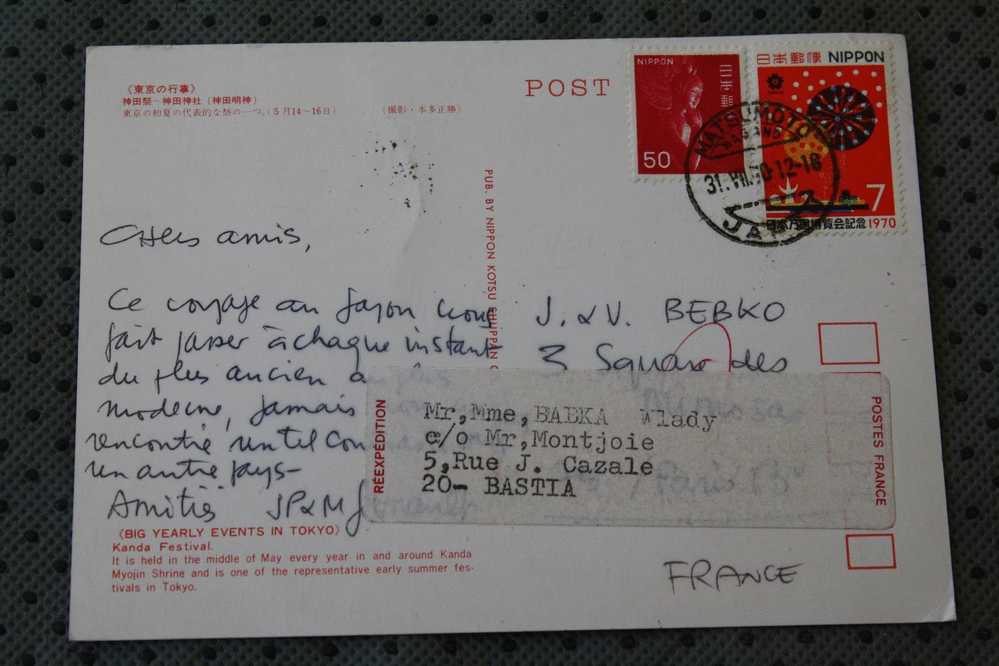 《東京の行事》
神田祭－神田神社（神田明神）
東京の初夏の代表的な祭の一つ。(5月14～16日)
(撮影・本多正勝)
POST
NIPPON
日本郵便
50
日本郵便 NIPPON
7
日本万国博覧会記念 1970
MATSUMOTO
NAGANO
31.VII.70.12-18
JAPAN
PUB. BY NIPPON KOTSU SHUPPAN C
Chers amis,
Ce voyage au Japon nous
fait passer à chaque instant
du plus ancien au plus
moderne, jamais
rencontré un tel con
un autre pays-
Amitiés JP & M
J. & V. BEBKO
3 Square des
Mimosas
Paris 13
FRANCE
RÉEXPÉDITION
Mr,Mme,BABKA Wlady
c/o Mr,Montjoie
5,Rue J. Cazale
20- BASTIA
POSTES FRANCE
(BIG YEARLY EVENTS IN TOKYO)
Kanda Festival.
It is held in the middle of May every year in and around Kanda
Myojin Shrine and is one of the representative early summer fes-
tivals in Tokyo.